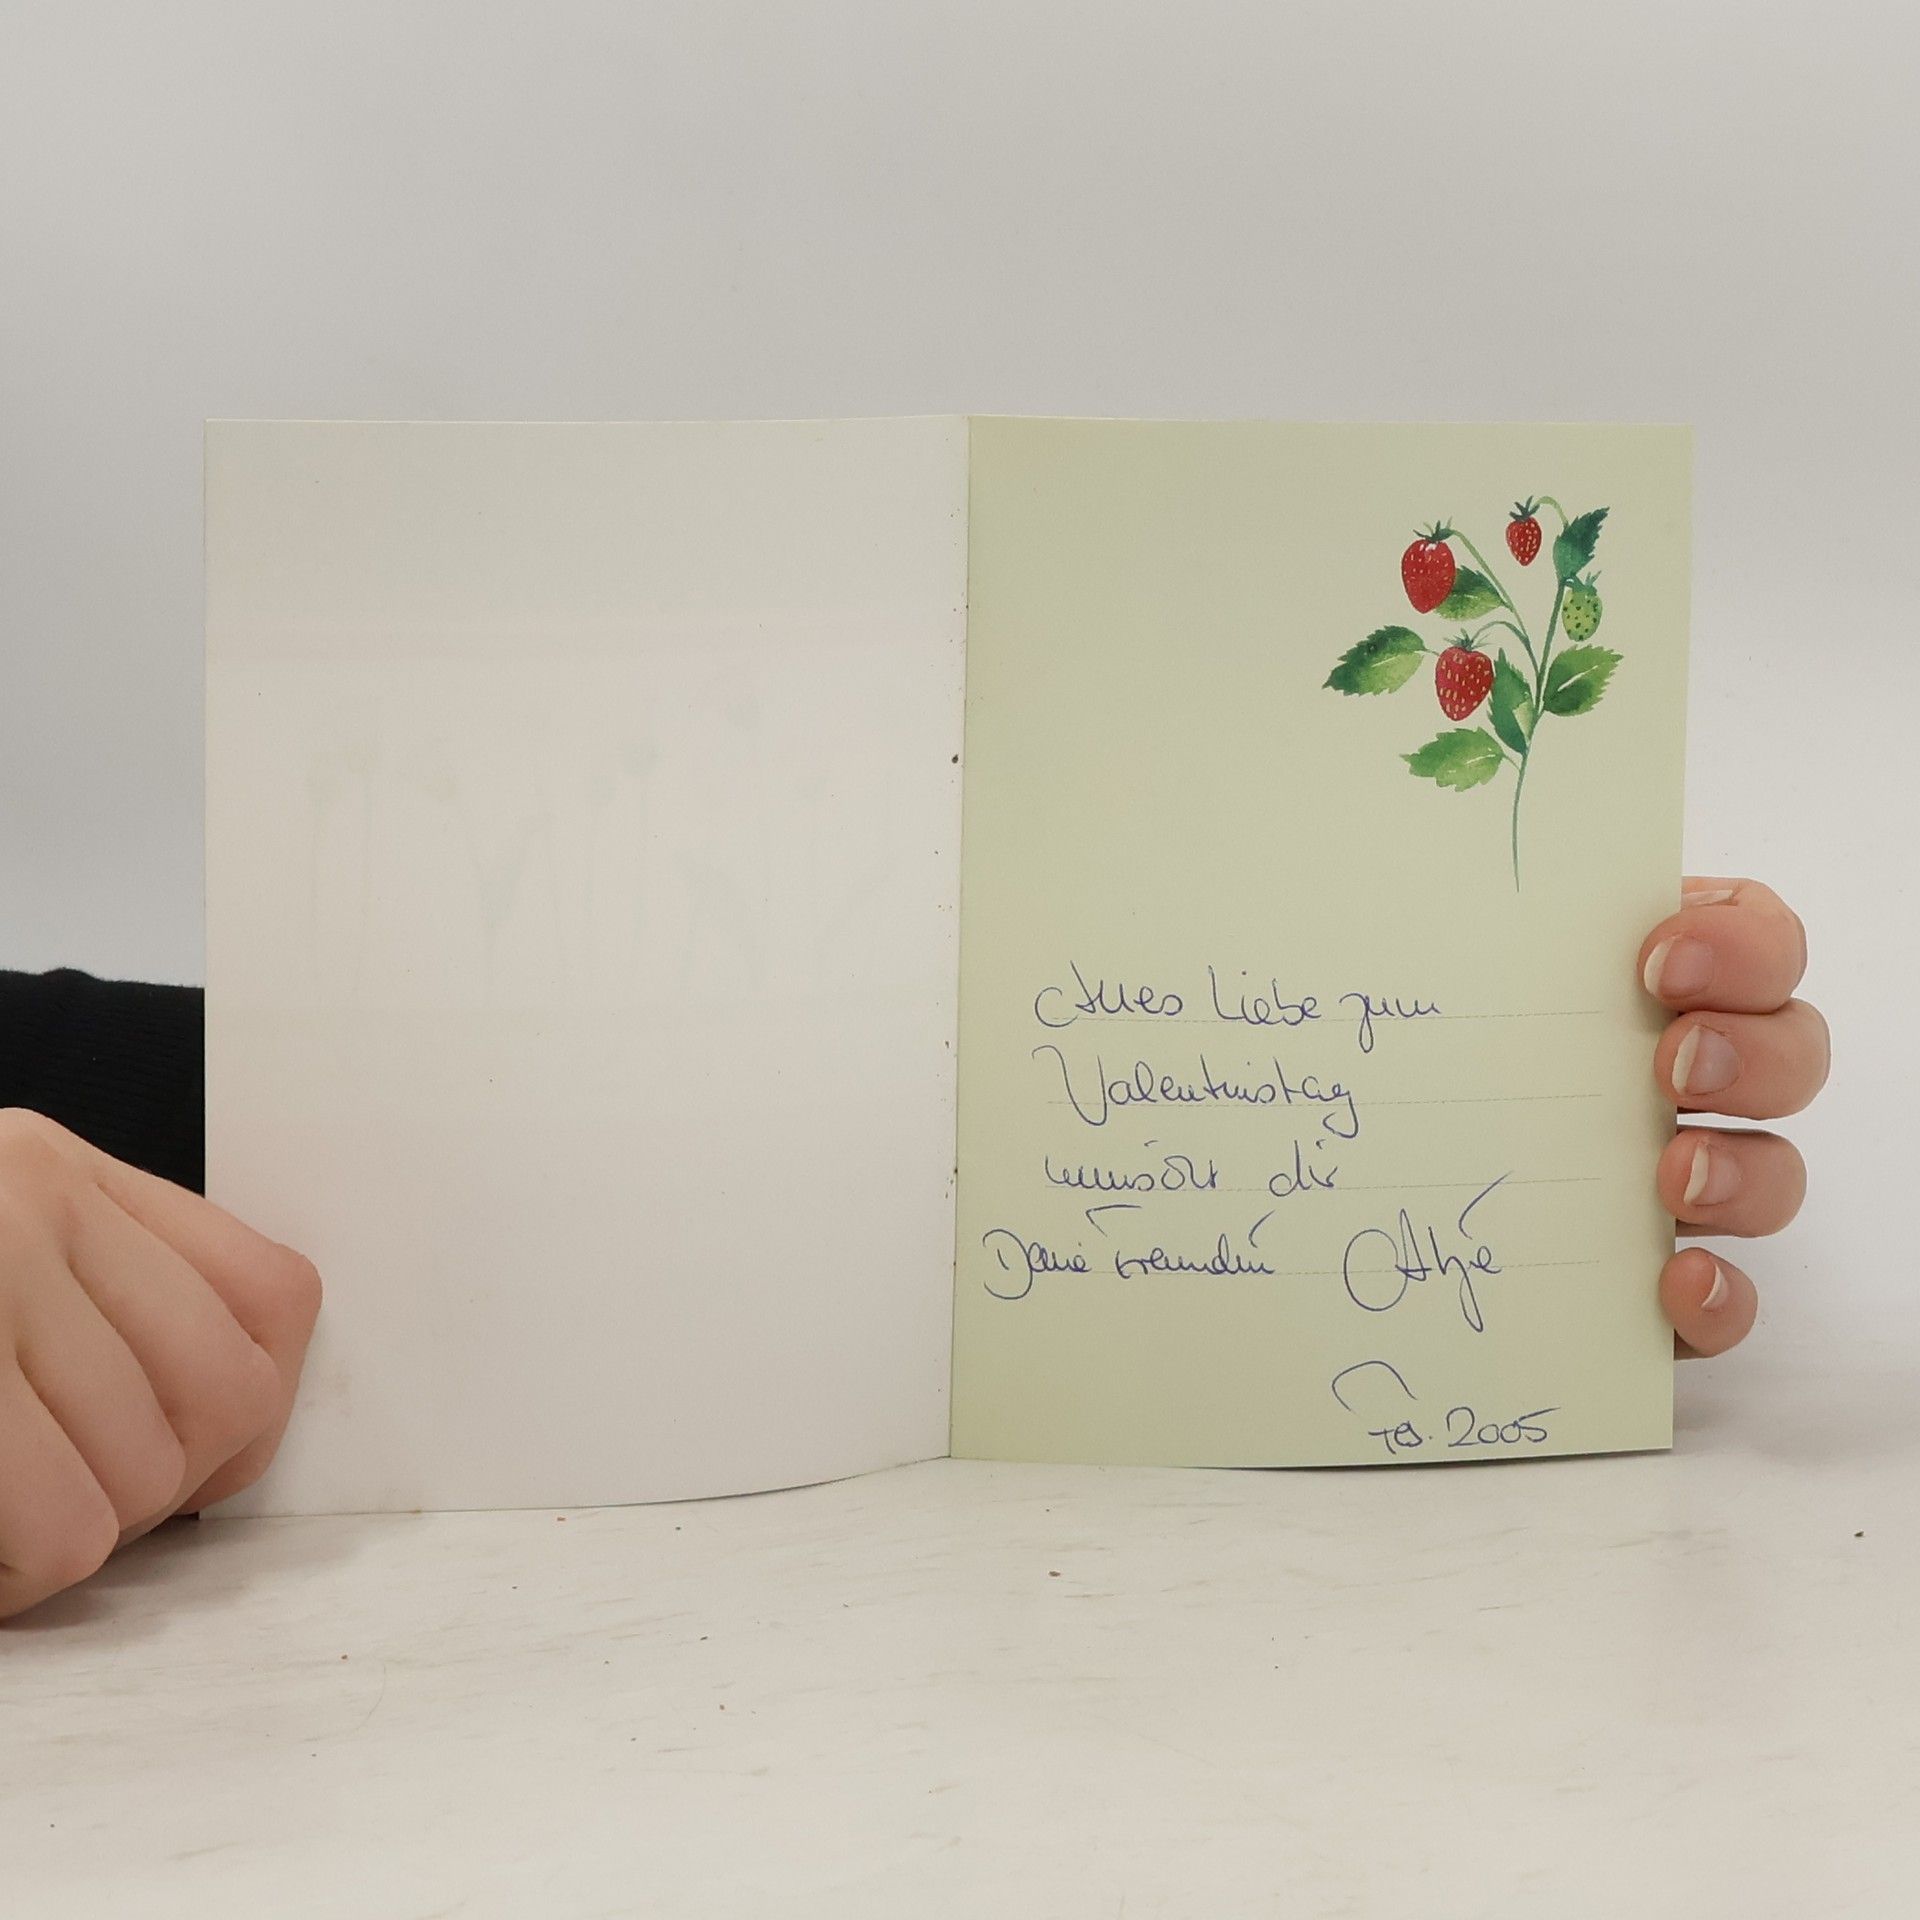 Alles Liebe zum
Valentinstag
wünscht dir
Deine Freundin Antje
Feb. 2005